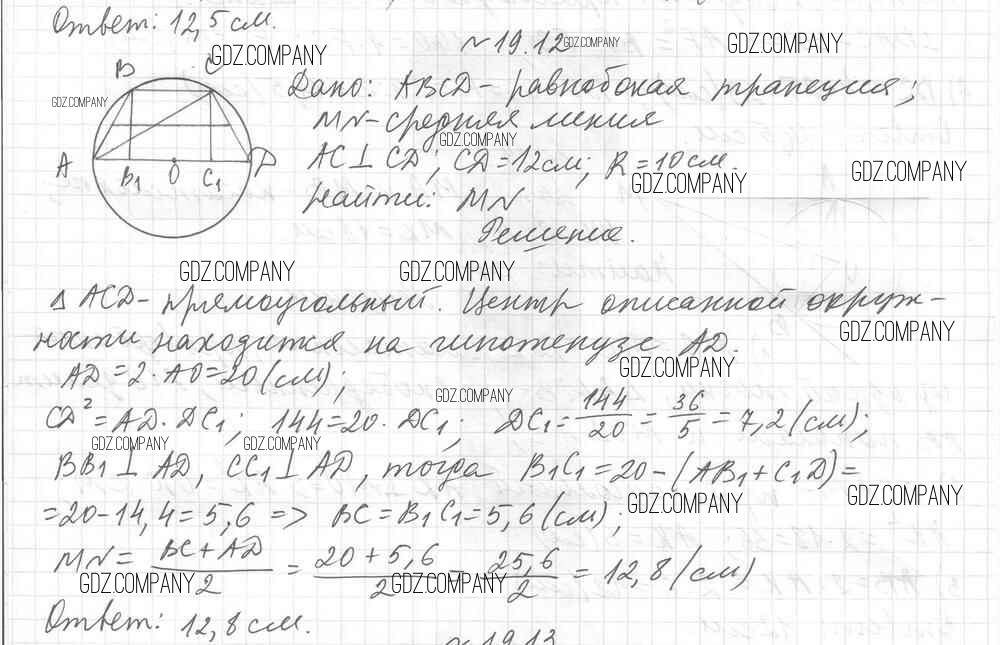 Ответ: 12,5 см.
~ 19.12 GDZ.COMPANY GDZ.COMPANY
B C GDZ.COMPANY
Дано: ABCD - равнобокая трапеция;
GDZ.COMPANY
MN - средняя линия
GDZ.COMPANY
AC ⊥ CD; CD = 12 см; R = 10 см.
A B₁ O C₁ D
GDZ.COMPANY GDZ.COMPANY
Найти: MN
Решение.
GDZ.COMPANY GDZ.COMPANY
Δ ACD - прямоугольный. Центр описанной окруж-
GDZ.COMPANY
ности находится на гипотенузе AD.
GDZ.COMPANY
AD = 2 · AO = 20 (см);
GDZ.COMPANY
CD² = AD · DC₁; 144 = 20 · DC₁; DC₁ = 144/20 = 36/5 = 7,2 (см);
GDZ.COMPANY GDZ.COMPANY
BB₁ ⊥ AD, CC₁ ⊥ AD, тогда B₁C₁ = 20 - (AB₁ + C₁D) =
GDZ.COMPANY GDZ.COMPANY
= 20 - 14,4 = 5,6 => BC = B₁C₁ = 5,6 (см);
MN = BC + AD/2 = 20 + 5,6/2 = 25,6/2 = 12,8 (см)
GDZ.COMPANY GDZ.COMPANY
Ответ: 12,8 см.
~ 19.13